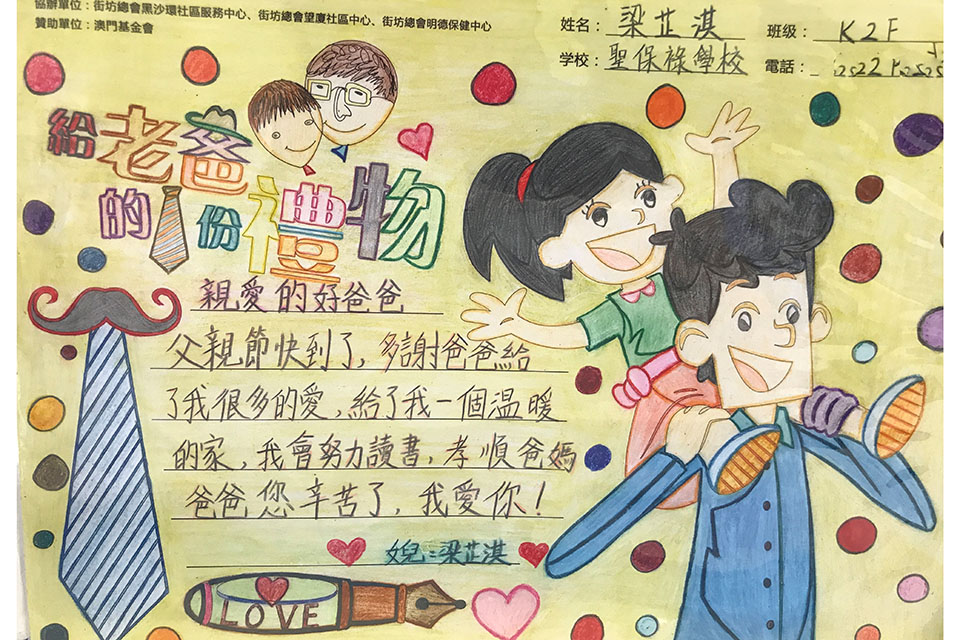 協辦單位：街坊總會黑沙環社區服務中心、街坊總會望廈社區中心、街坊總會明德保健中心
贊助單位：澳門基金會
姓名：梁芷淇 班级：K2F
学校：聖保祿學校 電話：
給老爸
的一份禮物
親愛的好爸爸
父親節快到了，多謝爸爸給
了我很多的愛，給了我一個温暖
的家，我會努力讀書，孝順爸媽
爸爸您辛苦了，我愛你！
女兒：梁芷淇
LOVE